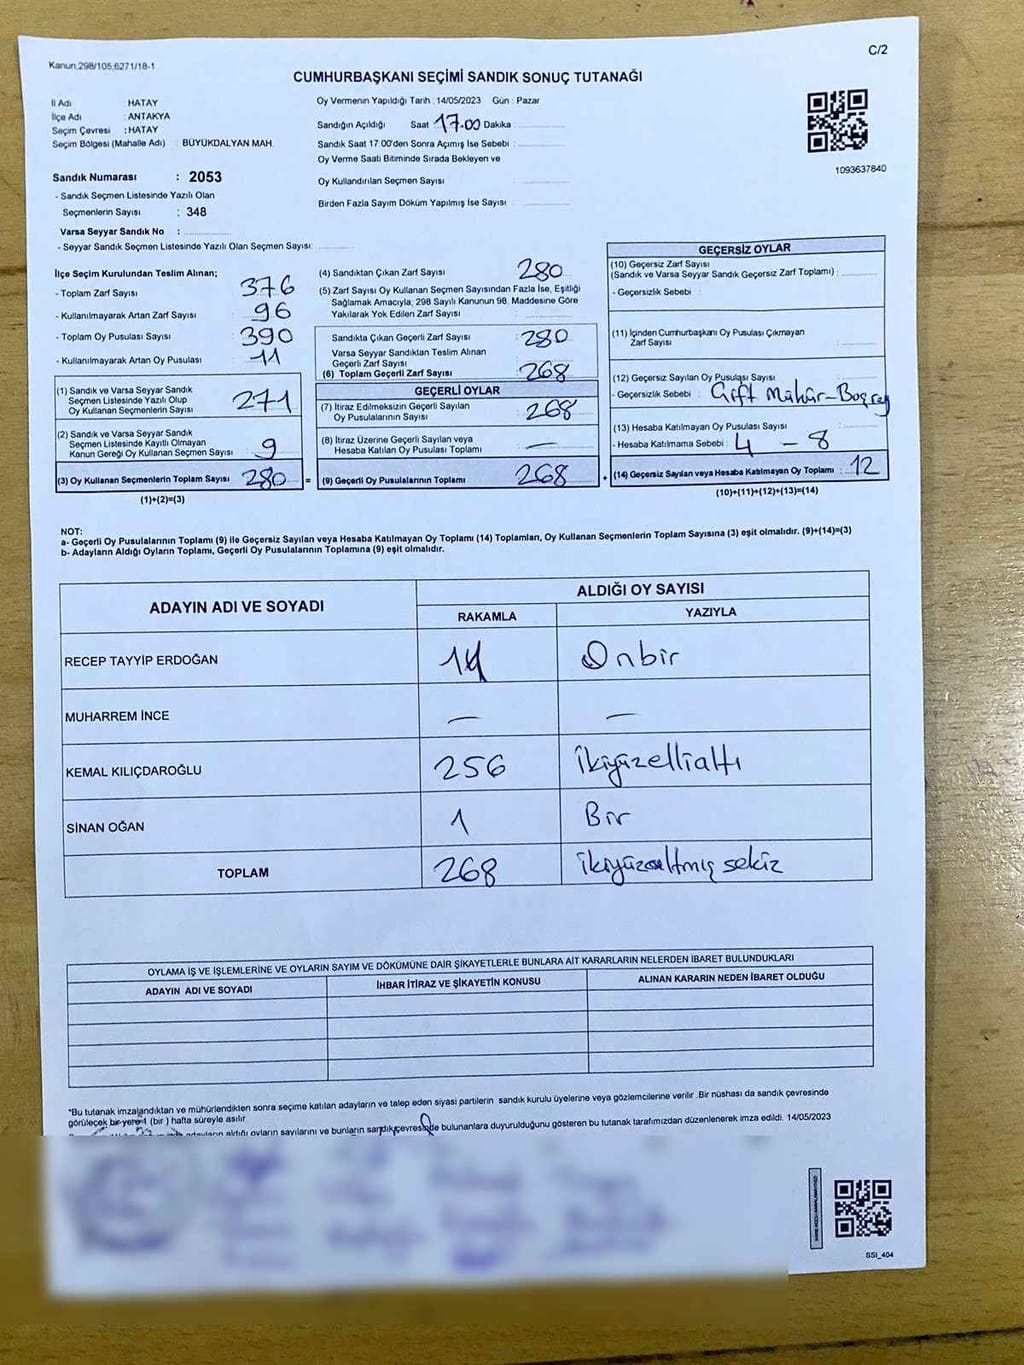 C/2
Kanun,298/105,6271/18-1
CUMHURBAŞKANI SEÇİMİ SANDIK SONUÇ TUTANAĞI
İl Adı : HATAY
İlçe Adı : ANTAKYA
Seçim Çevresi : HATAY
Seçim Bölgesi (Mahalle Adı) : BÜYÜKDALYAN MAH.
Sandık Numarası : 2053
- Sandık Seçmen Listesinde Yazılı Olan
Seçmenlerin Sayısı : 348
Varsa Seyyar Sandık No :
- Seyyar Sandık Seçmen Listesinde Yazılı Olan Seçmen Sayısı:
Oy Vermenin Yapıldığı Tarih : 14/05/2023 Gün : Pazar
Sandığın Açıldığı Saat 17.00 Dakika
Sandık Saat 17.00'den Sonra Açımış İse Sebebi :
Oy Verme Saati Bitiminde Sırada Bekleyen ve
Oy Kullandırılan Seçmen Sayısı
Birden Fazla Sayım Döküm Yapılmış İse Sayısı :
1093637840
İlçe Seçim Kurulundan Teslim Alınan;
- Toplam Zarf Sayısı 376
- Kullanılmayarak Artan Zarf Sayısı 96
- Toplam Oy Pusulası Sayısı 390
- Kullanılmayarak Artan Oy Pusulası 11
(1) Sandık ve Varsa Seyyar Sandık
Seçmen Listesinde Yazılı Olup
Oy Kullanan Seçmenlerin Sayısı 271
(2) Sandık ve Varsa Seyyar Sandık
Seçmen Listesinde Kayıtlı Olmayan
Kanun Gereği Oy Kullanan Seçmen Sayısı 9
(3) Oy Kullanan Seçmenlerin Toplam Sayısı 280 =
(1)+(2)=(3)
(4) Sandıktan Çıkan Zarf Sayısı 280
(5) Zarf Sayısı Oy Kullanan Seçmen Sayısından Fazla İse, Eşitliği
Sağlamak Amacıyla, 298 Sayılı Kanunun 98. Maddesine Göre
Yakılarak Yok Edilen Zarf Sayısı :
Sandıkta Çıkan Geçerli Zarf Sayısı : 280
Varsa Seyyar Sandıktan Teslim Alınan
Geçerli Zarf Sayısı
(6) Toplam Geçerli Zarf Sayısı : 268
GEÇERLİ OYLAR
(7) İtiraz Edilmeksizin Geçerli Sayılan
Oy Pusulalarının Sayısı : 268
(8) İtiraz Üzerine Geçerli Sayılan veya
Hesaba Katılan Oy Pusulası Toplamı : —
(9) Geçerli Oy Pusulalarının Toplamı : 268 +
GEÇERSİZ OYLAR
(10) Geçersiz Zarf Sayısı
(Sandık ve Varsa Seyyar Sandık Geçersiz Zarf Toplamı) :
- Geçersizlik Sebebi :
(11) İçinden Cumhurbaşkanı Oy Pusulası Çıkmayan
Zarf Sayısı :
(12) Geçersiz Sayılan Oy Pusulası Sayısı
- Geçersizlik Sebebi : Çift Mühür-Boş
(13) Hesaba Katılmayan Oy Pusulası Sayısı
- Hesaba Katılmama Sebebi : 4 - 8
(14) Geçersiz Sayılan veya Hesaba Katılmayan Oy Toplamı : 12
(10)+(11)+(12)+(13)=(14)
NOT:
a- Geçerli Oy Pusulalarının Toplamı (9) ile Geçersiz Sayılan veya Hesaba Katılmayan Oy Toplamı (14) Toplamları, Oy Kullanan Seçmenlerin Toplam Sayısına (3) eşit olmalıdır. (9)+(14)=(3)
b- Adayların Aldığı Oyların Toplamı, Geçerli Oy Pusulalarının Toplamına (9) eşit olmalıdır.
ADAYIN ADI VE SOYADI
ALDIĞI OY SAYISI
RAKAMLA YAZIYLA
RECEP TAYYİP ERDOĞAN 11 Onbir
MUHARREM İNCE — —
KEMAL KILIÇDAROĞLU 256 ikiyüzellialtı
SİNAN OĞAN 1 Bir
TOPLAM 268 ikiyüzaltmış sekiz
OYLAMA İŞ VE İŞLEMLERİNE VE OYLARIN SAYIM VE DÖKÜMÜNE DAİR ŞİKAYETLERLE BUNLARA AİT KARARLARIN NELERDEN İBARET BULUNDUKLARI
ADAYIN ADI VE SOYADI İHBAR İTİRAZ VE ŞİKAYETİN KONUSU ALINAN KARARIN NEDEN İBARET OLDUĞU
*Bu tutanak imzalandıktan ve mühürlendikten sonra seçime katılan adayların ve talep eden siyasi partilerin sandık kurulu üyelerine veya gözlemcilerine verilir .Bir nüshası da sandık çevresinde
görülecek bir yere 1 (bir ) hafta süreyle asılır.
adayların aldığı oyların sayılarını ve bunların sandık çevresinde bulunanlara duyurulduğunu gösteren bu tutanak tarafımızdan düzenlenerek imza edildi. 14/05/2023
SSI_404